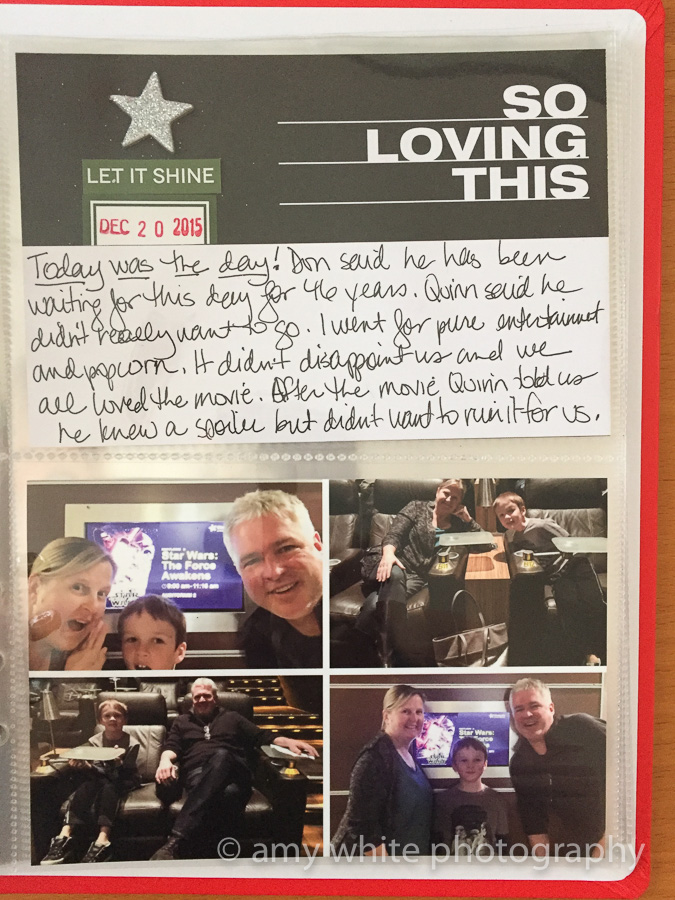 SO
LOVING
THIS
LET IT SHINE
DEC 20 2015
Today was the day! Don said he has been
waiting for this day for 46 years. Quinn said he
didn't really want to go. I went for pure entertainment
and popcorn. It didn't disappoint us and we
all loved the movie. After the movie Quinn told us
he knew a spoiler but didn't want to ruin it for us.
Star Wars:
The Force
Awakens
Star Wars:
The Force
Awakens
© amy white photography